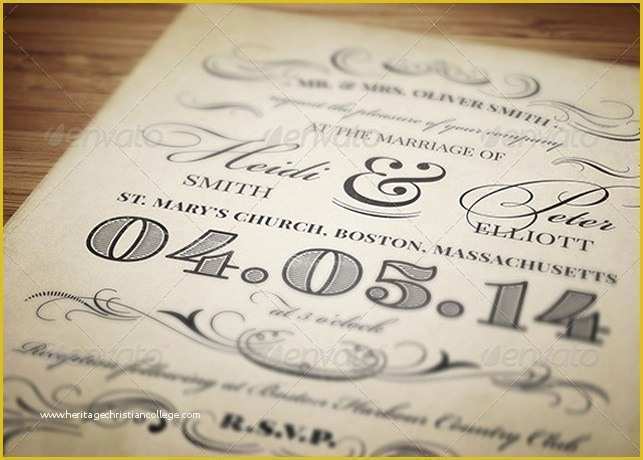 MR. & MRS. OLIVER SMITH
request the pleasure of your company
AT THE MARRIAGE OF
Heidi & Peter
SMITH ELLIOTT
ST. MARY'S CHURCH, BOSTON, MASSACHUSETTS
04.05.14
at 3 o'clock
Reception following at Boston Harbour Country Club
R.S.V.P.
www.heritagechristiancollege.com
envato